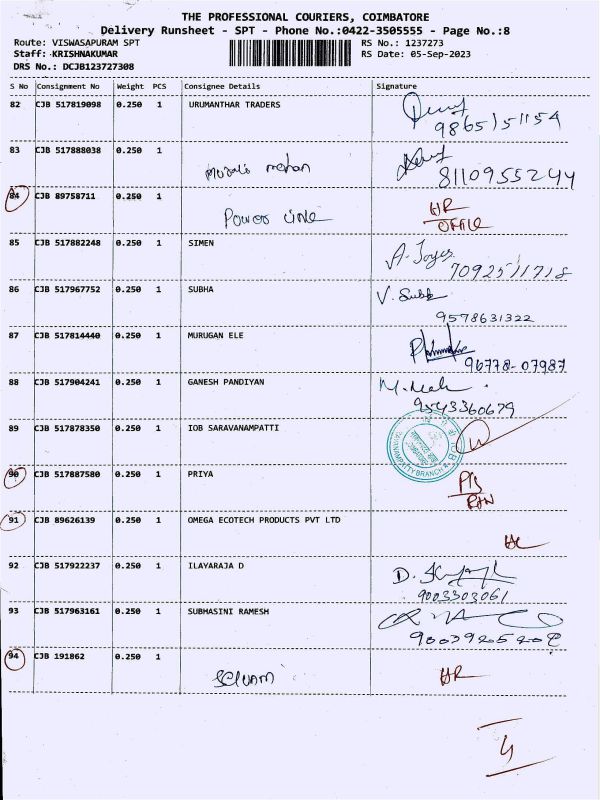 THE PROFESSIONAL COURIERS, COIMBATORE
Delivery Runsheet - SPT - Phone No.:0422-3505555 - Page No.:8
Route: VISWASAPURAM SPT
Staff: KRISHNAKUMAR
DRS No.: DCJB123727308
RS No.: 1237273
RS Date: 05-Sep-2023
S No Consignment No Weight PCS Consignee Details Signature
82 CJB 517819098 0.250 1 URUMANTHAR TRADERS
9865151154
83 CJB 517888038 0.250 1 Murali mohan
8110955244
84 CJB 89758711 0.250 1 Power Line HR
OFFICE
85 CJB 517882248 0.250 1 SIMEN A. Joyes
7092511718
86 CJB 517967752 0.250 1 SUBHA V. Subh
9578631322
87 CJB 517814440 0.250 1 MURUGAN ELE
96778-07987
88 CJB 517904241 0.250 1 GANESH PANDIYAN
9543360679
89 CJB 517878350 0.250 1 IOB SARAVANAMPATTI
BRANCH
90 CJB 517887580 0.250 1 PRIYA
91 CJB 89626139 0.250 1 OMEGA ECOTECH PRODUCTS PVT LTD
92 CJB 517922237 0.250 1 ILAYARAJA D
9003303061
93 CJB 517963161 0.250 1 SUBHASINI RAMESH
94 CJB 191862 0.250 1 SELVAM HR